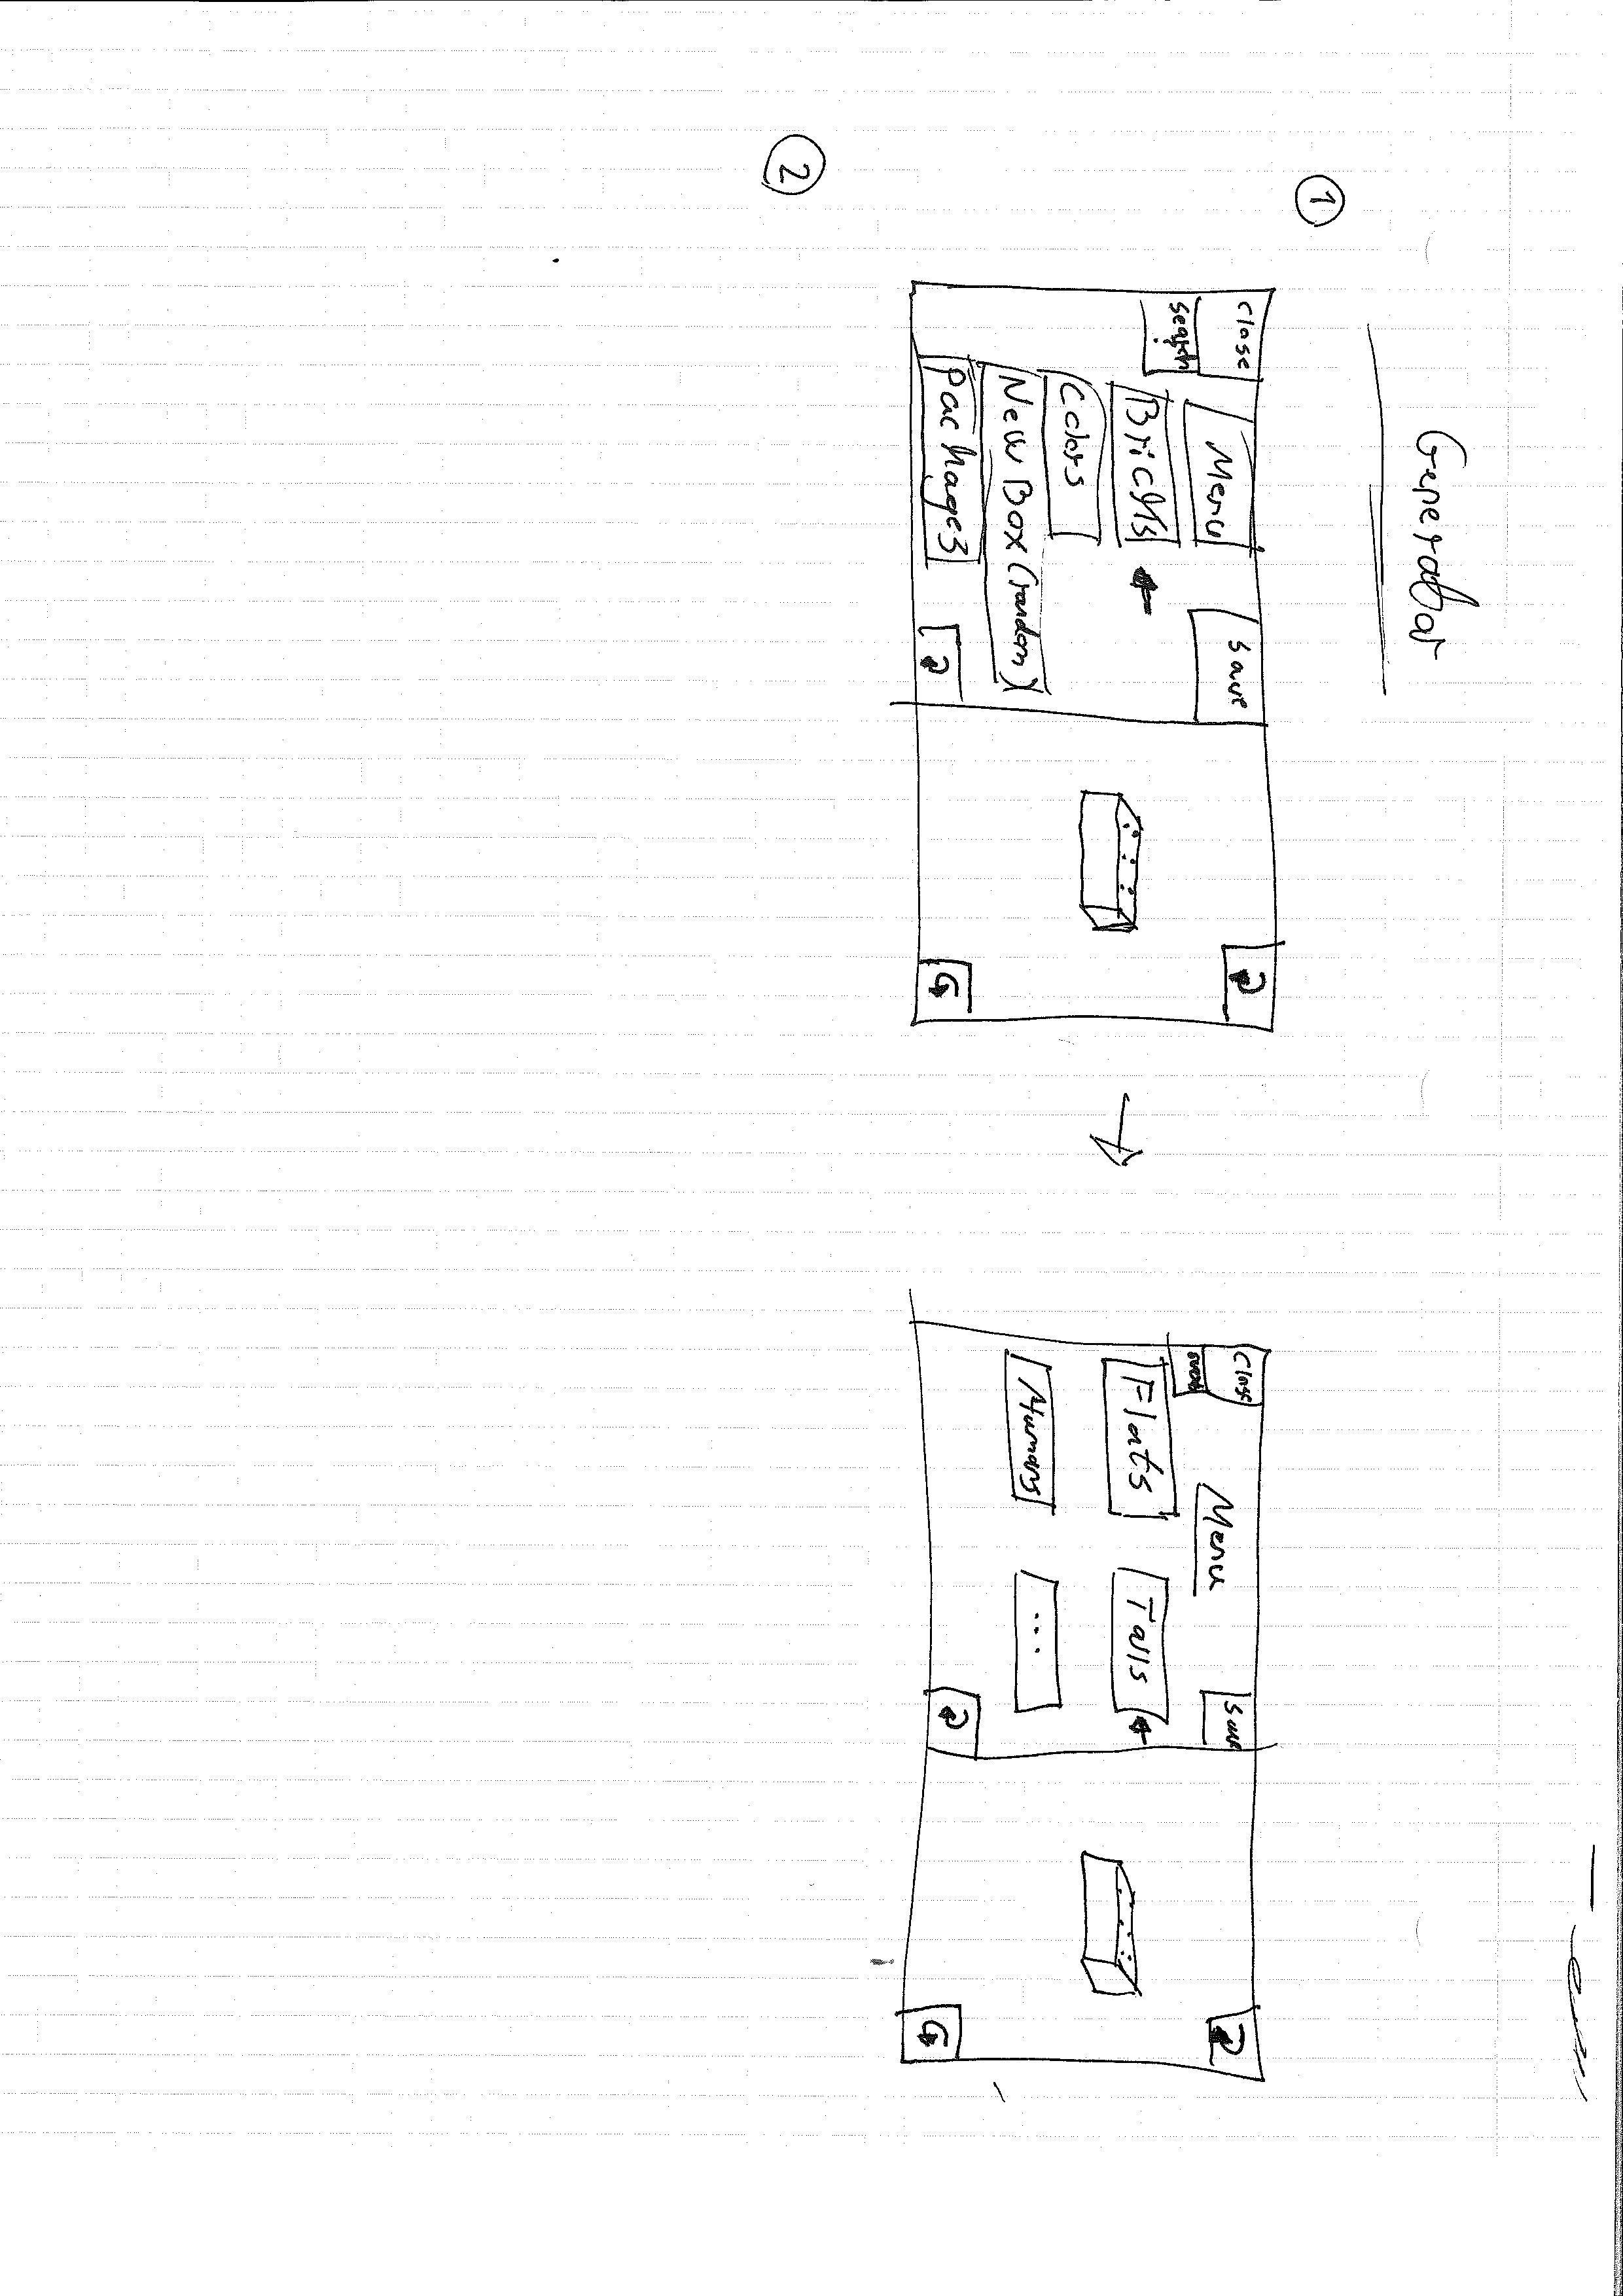 Generator
1
Close Menu Save
Search
Bricks
Colors
New Box (random)
Packages
Close Menu Save
Flats Talls
Humans ...
2